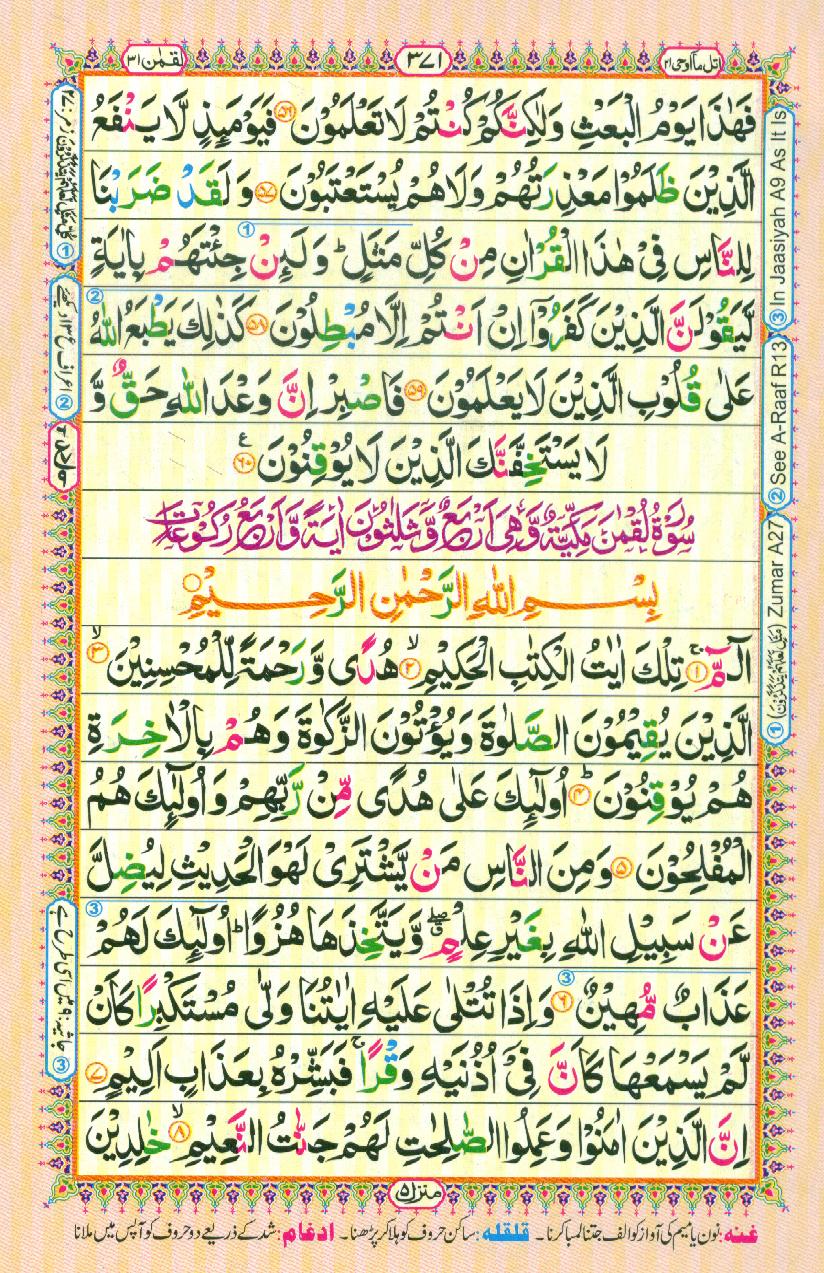 اتل ما اوحی ۲۱
۳۷۱
لقمٰن ۳۱
فَهٰذَا يَوۡمُ الۡبَعۡثِ وَلٰكِنَّكُمۡ كُنۡتُمۡ لَا تَعۡلَمُوۡنَ ﴿۵۶﴾ فَيَوۡمَئِذٍ لَّا يَنۡفَعُ
الَّذِيۡنَ ظَلَمُوۡا مَعۡذِرَتُهُمۡ وَلَا هُمۡ يُسۡتَعۡتَبُوۡنَ ﴿۵۷﴾ وَ لَقَدۡ ضَرَبۡنَا
لِلنَّاسِ فِىۡ هٰذَا الۡقُرۡاٰنِ مِنۡ كُلِّ مَثَلٍ ؕ وَ لَئِنۡ جِئۡتَهُمۡ بِاٰيَةٍ
لَّيَقُوۡلَنَّ الَّذِيۡنَ كَفَرُوۡۤا اِنۡ اَنۡتُمۡ اِلَّا مُبۡطِلُوۡنَ ﴿۵۸﴾ كَذٰلِكَ يَطۡبَعُ اللّٰهُ
عَلٰى قُلُوۡبِ الَّذِيۡنَ لَا يَعۡلَمُوۡنَ ﴿۵۹﴾ فَاصۡبِرۡ اِنَّ وَعۡدَ اللّٰهِ حَقٌّ وَّ
لَا يَسۡتَخِفَّنَّكَ الَّذِيۡنَ لَا يُوۡقِنُوۡنَ ﴿۶۰﴾ ع
سُوۡرَةُ لُقۡمٰنَ مَكِّيَّةٌ وَّهِىَ اَرۡبَعٌ وَّثَلٰثُوۡنَ اٰيَةً وَّاَرۡبَعُ رُكُوۡعَاتٍ
بِسۡمِ اللّٰهِ الرَّحۡمٰنِ الرَّحِيۡمِ
الٓمّٓ ۚ﴿۱﴾ تِلۡكَ اٰيٰتُ الۡكِتٰبِ الۡحَكِيۡمِ ۙ﴿۲﴾ هُدًى وَّ رَحۡمَةً لِّلۡمُحۡسِنِيۡنَ ۙ﴿۳﴾
الَّذِيۡنَ يُقِيۡمُوۡنَ الصَّلٰوةَ وَيُؤۡتُوۡنَ الزَّكٰوةَ وَهُمۡ بِالۡاٰخِرَةِ
هُمۡ يُوۡقِنُوۡنَ ؕ﴿۴﴾ اُولٰٓئِكَ عَلٰى هُدًى مِّنۡ رَّبِّهِمۡ وَ اُولٰٓئِكَ هُمُ
الۡمُفۡلِحُوۡنَ ﴿۵﴾ وَمِنَ النَّاسِ مَنۡ يَّشۡتَرِىۡ لَهۡوَ الۡحَدِيۡثِ لِيُضِلَّ
عَنۡ سَبِيۡلِ اللّٰهِ بِغَيۡرِ عِلۡمٍ ۖ وَّيَتَّخِذَهَا هُزُوًا ؕ اُولٰٓئِكَ لَهُمۡ
عَذَابٌ مُّهِيۡنٌ ﴿۶﴾ وَاِذَا تُتۡلٰى عَلَيۡهِ اٰيٰتُنَا وَلّٰى مُسۡتَكۡبِرًا كَاَنۡ
لَّمۡ يَسۡمَعۡهَا كَاَنَّ فِىۡۤ اُذُنَيۡهِ وَقۡرًا ۚ فَبَشِّرۡهُ بِعَذَابٍ اَلِيۡمٍ ﴿۷﴾
اِنَّ الَّذِيۡنَ اٰمَنُوۡا وَ عَمِلُوا الصّٰلِحٰتِ لَهُمۡ جَنّٰتُ النَّعِيۡمِ ۙ﴿۸﴾ خٰلِدِيۡنَ
منزل ۵
غنہ: نون یا میم کی آواز کو الف جتنا لمبا کرنا۔ قلقلہ: ساکن حروف کو ہلا کر پڑھنا۔ ادغام: شد کے ذریعے دو حروف کو آپس میں ملانا
① Zumar A27 ② See A-Raaf R13 ③ In Jaasiyah A9 As It Is